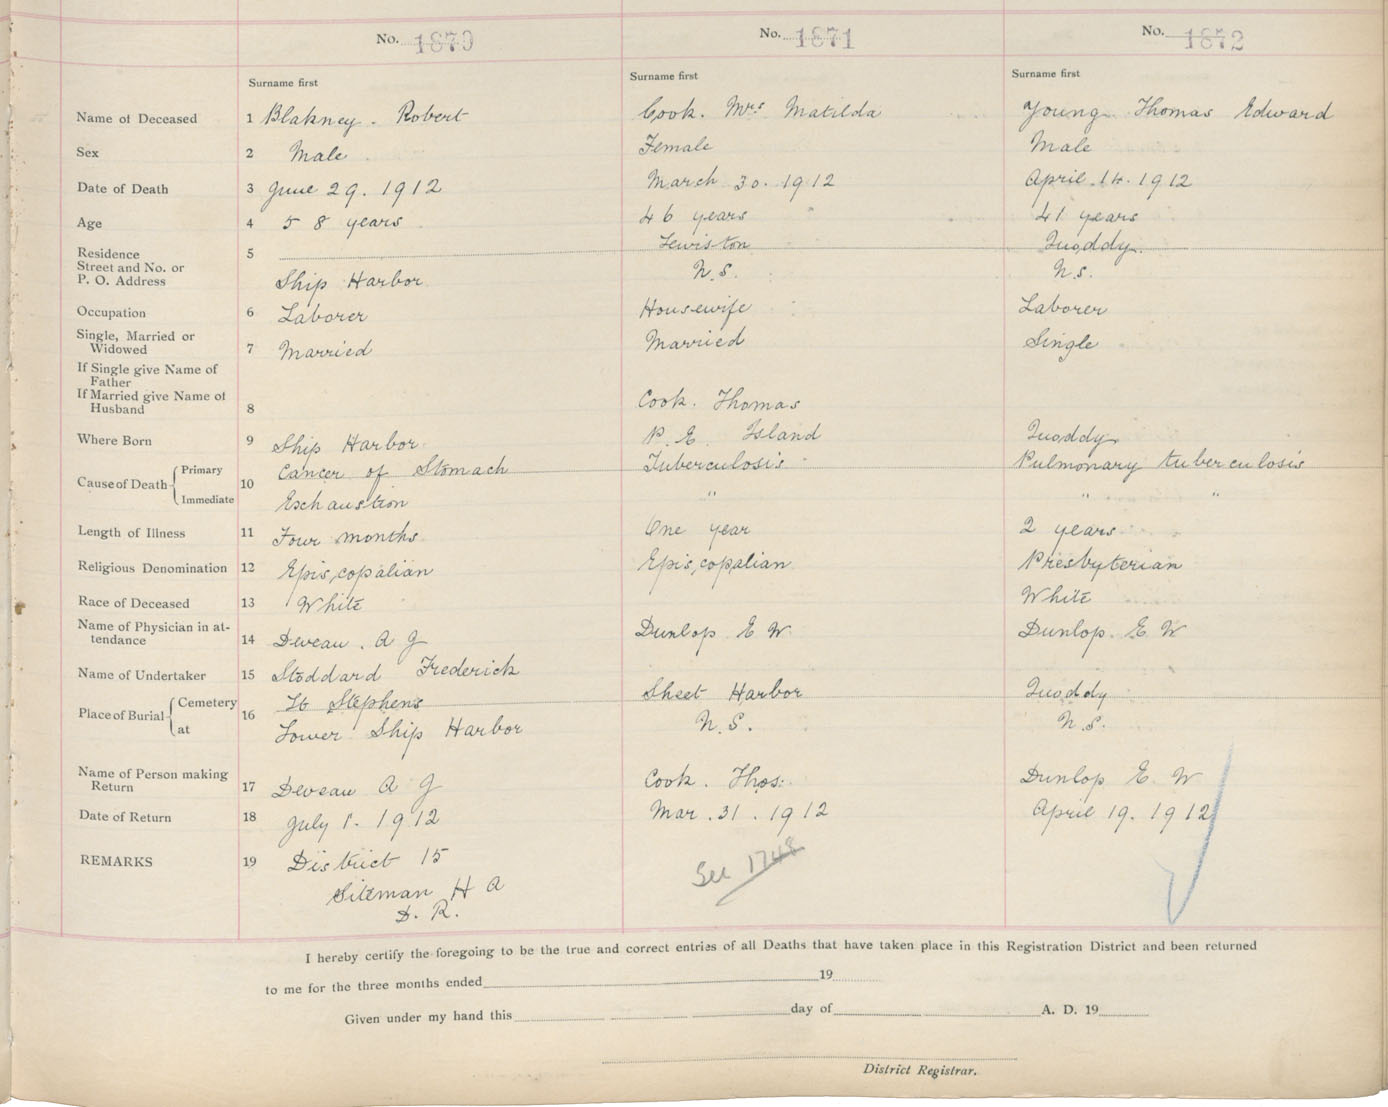 No. 1870 No. 1871 No. 1872
Surname first Surname first Surname first
Name of Deceased 1 Blakney. Robert Cook. Mrs Matilda Young Thomas Edward
Sex 2 Male Female Male
Date of Death 3 June 29. 1912 March 30. 1912 April. 14. 1912
Age 4 58 years 46 years 41 years
Residence 5 Lewiston Quoddy.
Street and No. or
P. O. Address Ship Harbor N.S. N.S.
Occupation 6 Laborer Housewife Laborer
Single, Married or
Widowed 7 Married Married Single
If Single give Name of
Father
If Married give Name of
Husband 8 Cook. Thomas
Where Born 9 Ship Harbor P. E. Island Quoddy
Cause of Death Primary 10 Cancer of Stomach Tuberculosis Pulmonary tuberculosis
Immediate Exhaustion " " "
Length of Illness 11 Four months One year 2 years
Religious Denomination 12 Episcopalian Episcopalian Presbyterian
Race of Deceased 13 White White
Name of Physician in at-
tendance 14 Deveau. A J Dunlop E W. Dunlop. E W
Name of Undertaker 15 Stoddard Frederick
Place of Burial Cemetery 16 St Stephens Sheet Harbor Quoddy
at Lower Ship Harbor N.S. N.S.
Name of Person making
Return 17 Deveau A J Cook. Thos. Dunlop E W
Date of Return 18 July 1. 1912 Mar. 31. 1912 April 19. 1912
REMARKS 19 District 15 See 1748
Siteman H A
D. R.
I hereby certify the foregoing to be the true and correct entries of all Deaths that have taken place in this Registration District and been returned
to me for the three months ended 19
Given under my hand this day of A. D. 19
District Registrar.